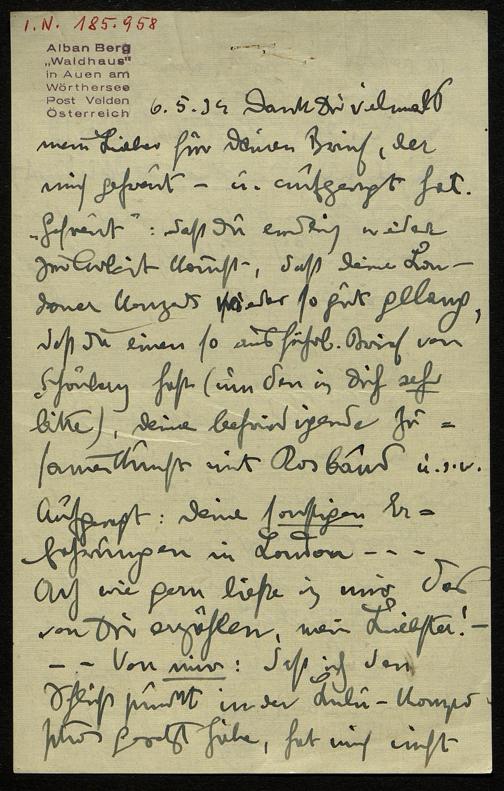 I.N. 185.958
Alban Berg
„Waldhaus"
in Auen am
Wörthersee
Post Velden
Österreich
6.5.34 Dank Dir vielmals
mein Lieber für Deinen Brief, der
mich gefreut – u. aufgeregt hat.
„Gefreut": daß Du endlich wieder
zur Arbeit kommst, daß Deine Lon-
doner Konzerts wieder so gut gelang,
daß Du einen so ausführl. Brief von
Schönberg hast (um den ich Dich sehr
bitte), Deine befriedigende Zu=
sammenkunft mit Rosbaud u.s.w.
Aufgeregt: Deine sonstigen Er=
fahrungen in London – – –
Ach wie gern ließe ich mir das
von Dir erzählen, mein Liebster! –
– – Von mir: daß ich den
Schlußpunkt in der Lulu-Kompo
gesetzt habe, hat mich nicht